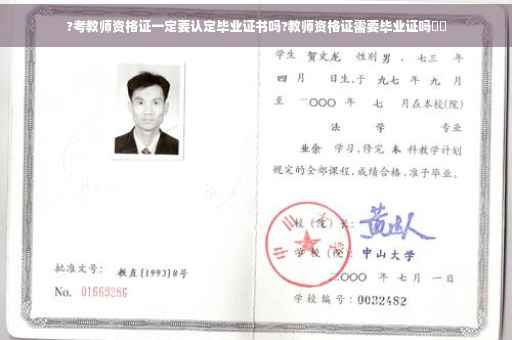 ?考教师资格证一定要认定毕业证书吗?教师资格证需要毕业证吗
学生 贺文龙 性别 男 、七三 年
四 月 日生,于 九七 年 九 月
至 二〇〇〇 年 七 月在本校(院)
法 学 专业
业余 学习,修完 本 科教学计划
规定的全部课程,成绩合格,准予毕业。
校(院)长:
学 校(院): 中山大学
二〇〇〇 年 七 月 一 日
批准文号: 教直[1993]8号
No. 01669286
学校编号: 0032482